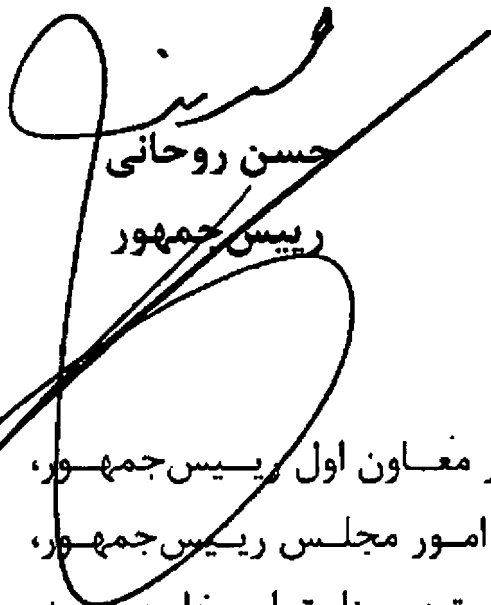 حسن روحانی
رییس‌جمهور
معاون اول رییس‌جمهور،
امور مجلس رییس‌جمهور،